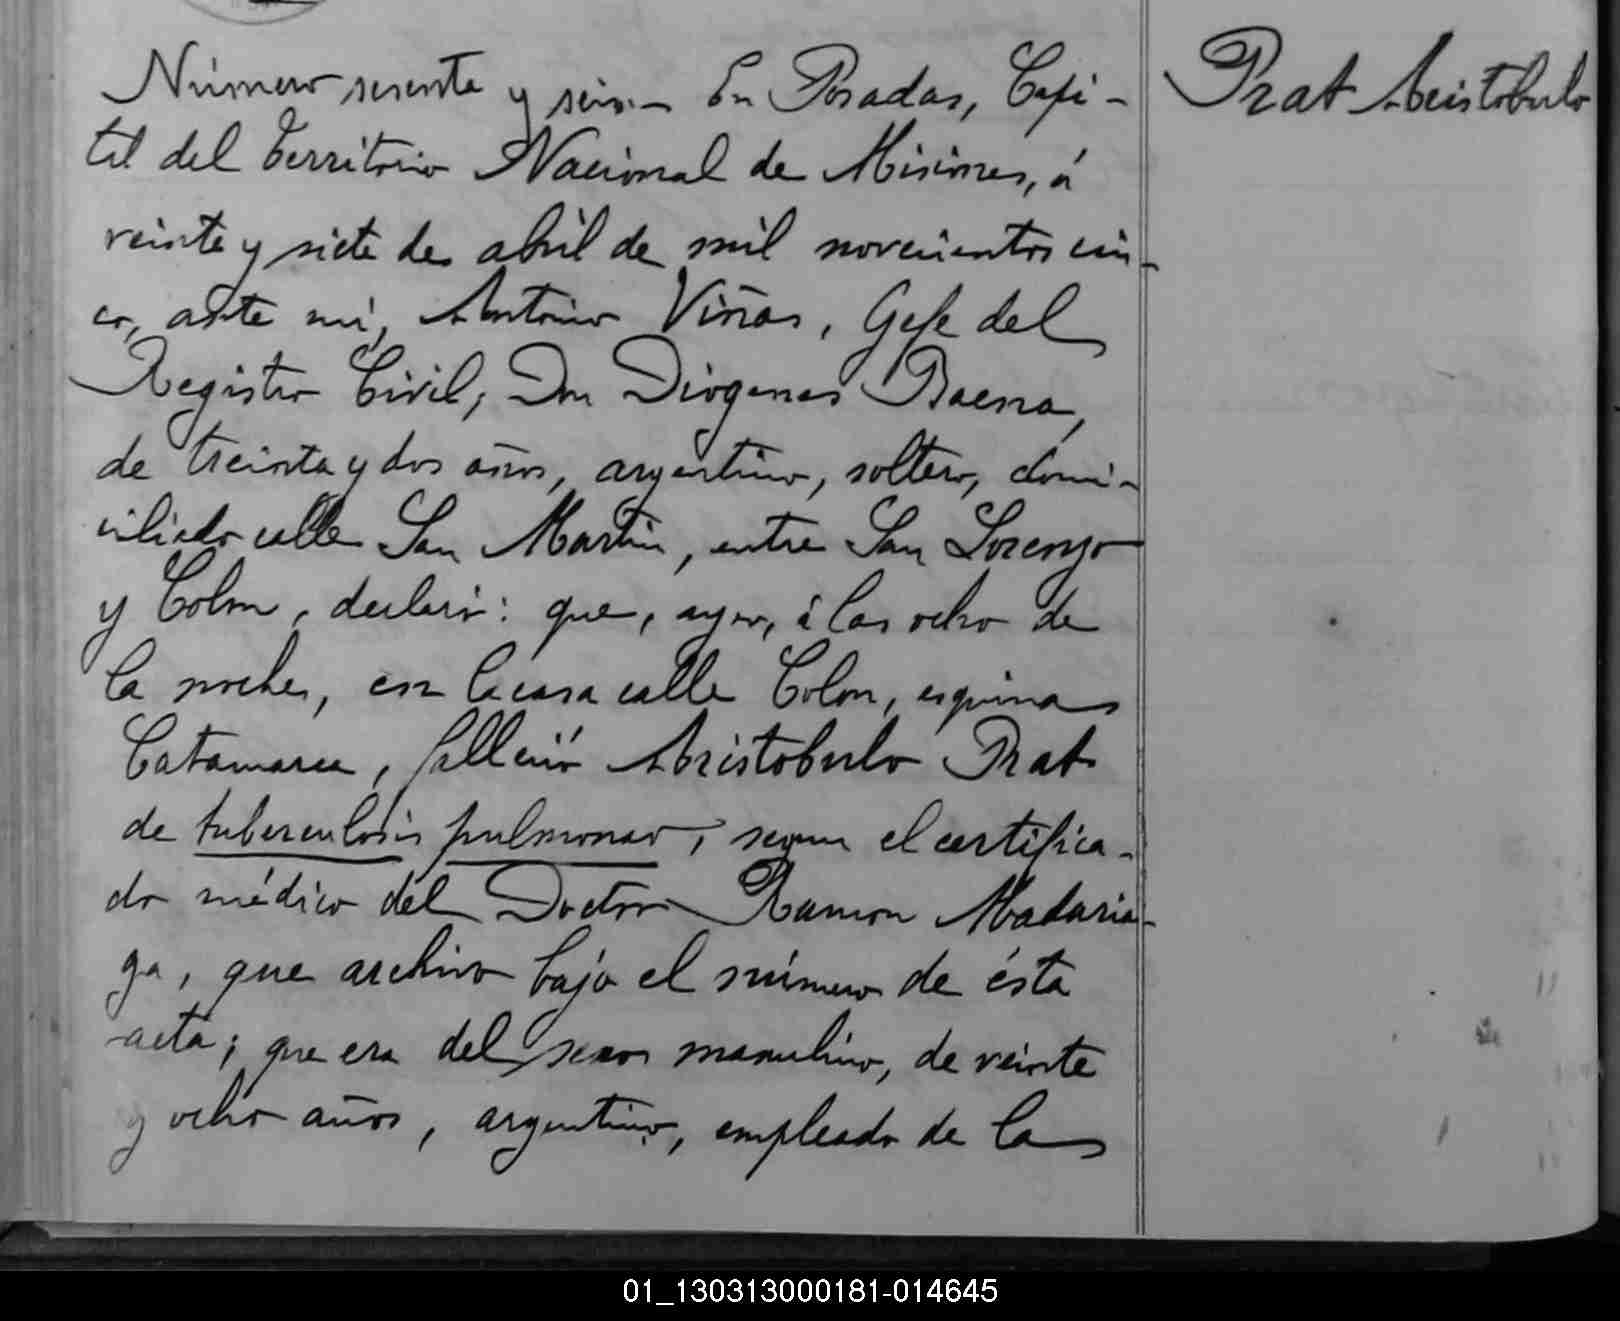 Número sesenta y seis.– En Posadas, Capi-
tal del Territorio Nacional de Misiones, á
veinte y siete de abril de mil novecientos cin-
co, ante mi, Antonio Viñas, Gefe del
Registro Civil, Don Diogenes Baena,
de treinta y dos años, argentino, soltero, domi-
ciliado calle San Martin, entre San Lorenzo
y Colon, declaró: que, ayer, á las ocho de
la noche, en la casa calle Colon, esquina
Catamarca, falleció Aristobulo Prat
de tuberculosis pulmonar, segun el certifica-
do médico del Doctor Ramon Madaria-
ga, que archivo bajo el número de ésta
acta; que era del sexo masculino, de veinte
y ocho años, argentino, empleado de la
Prat Aristobulo
01_130313000181-014645